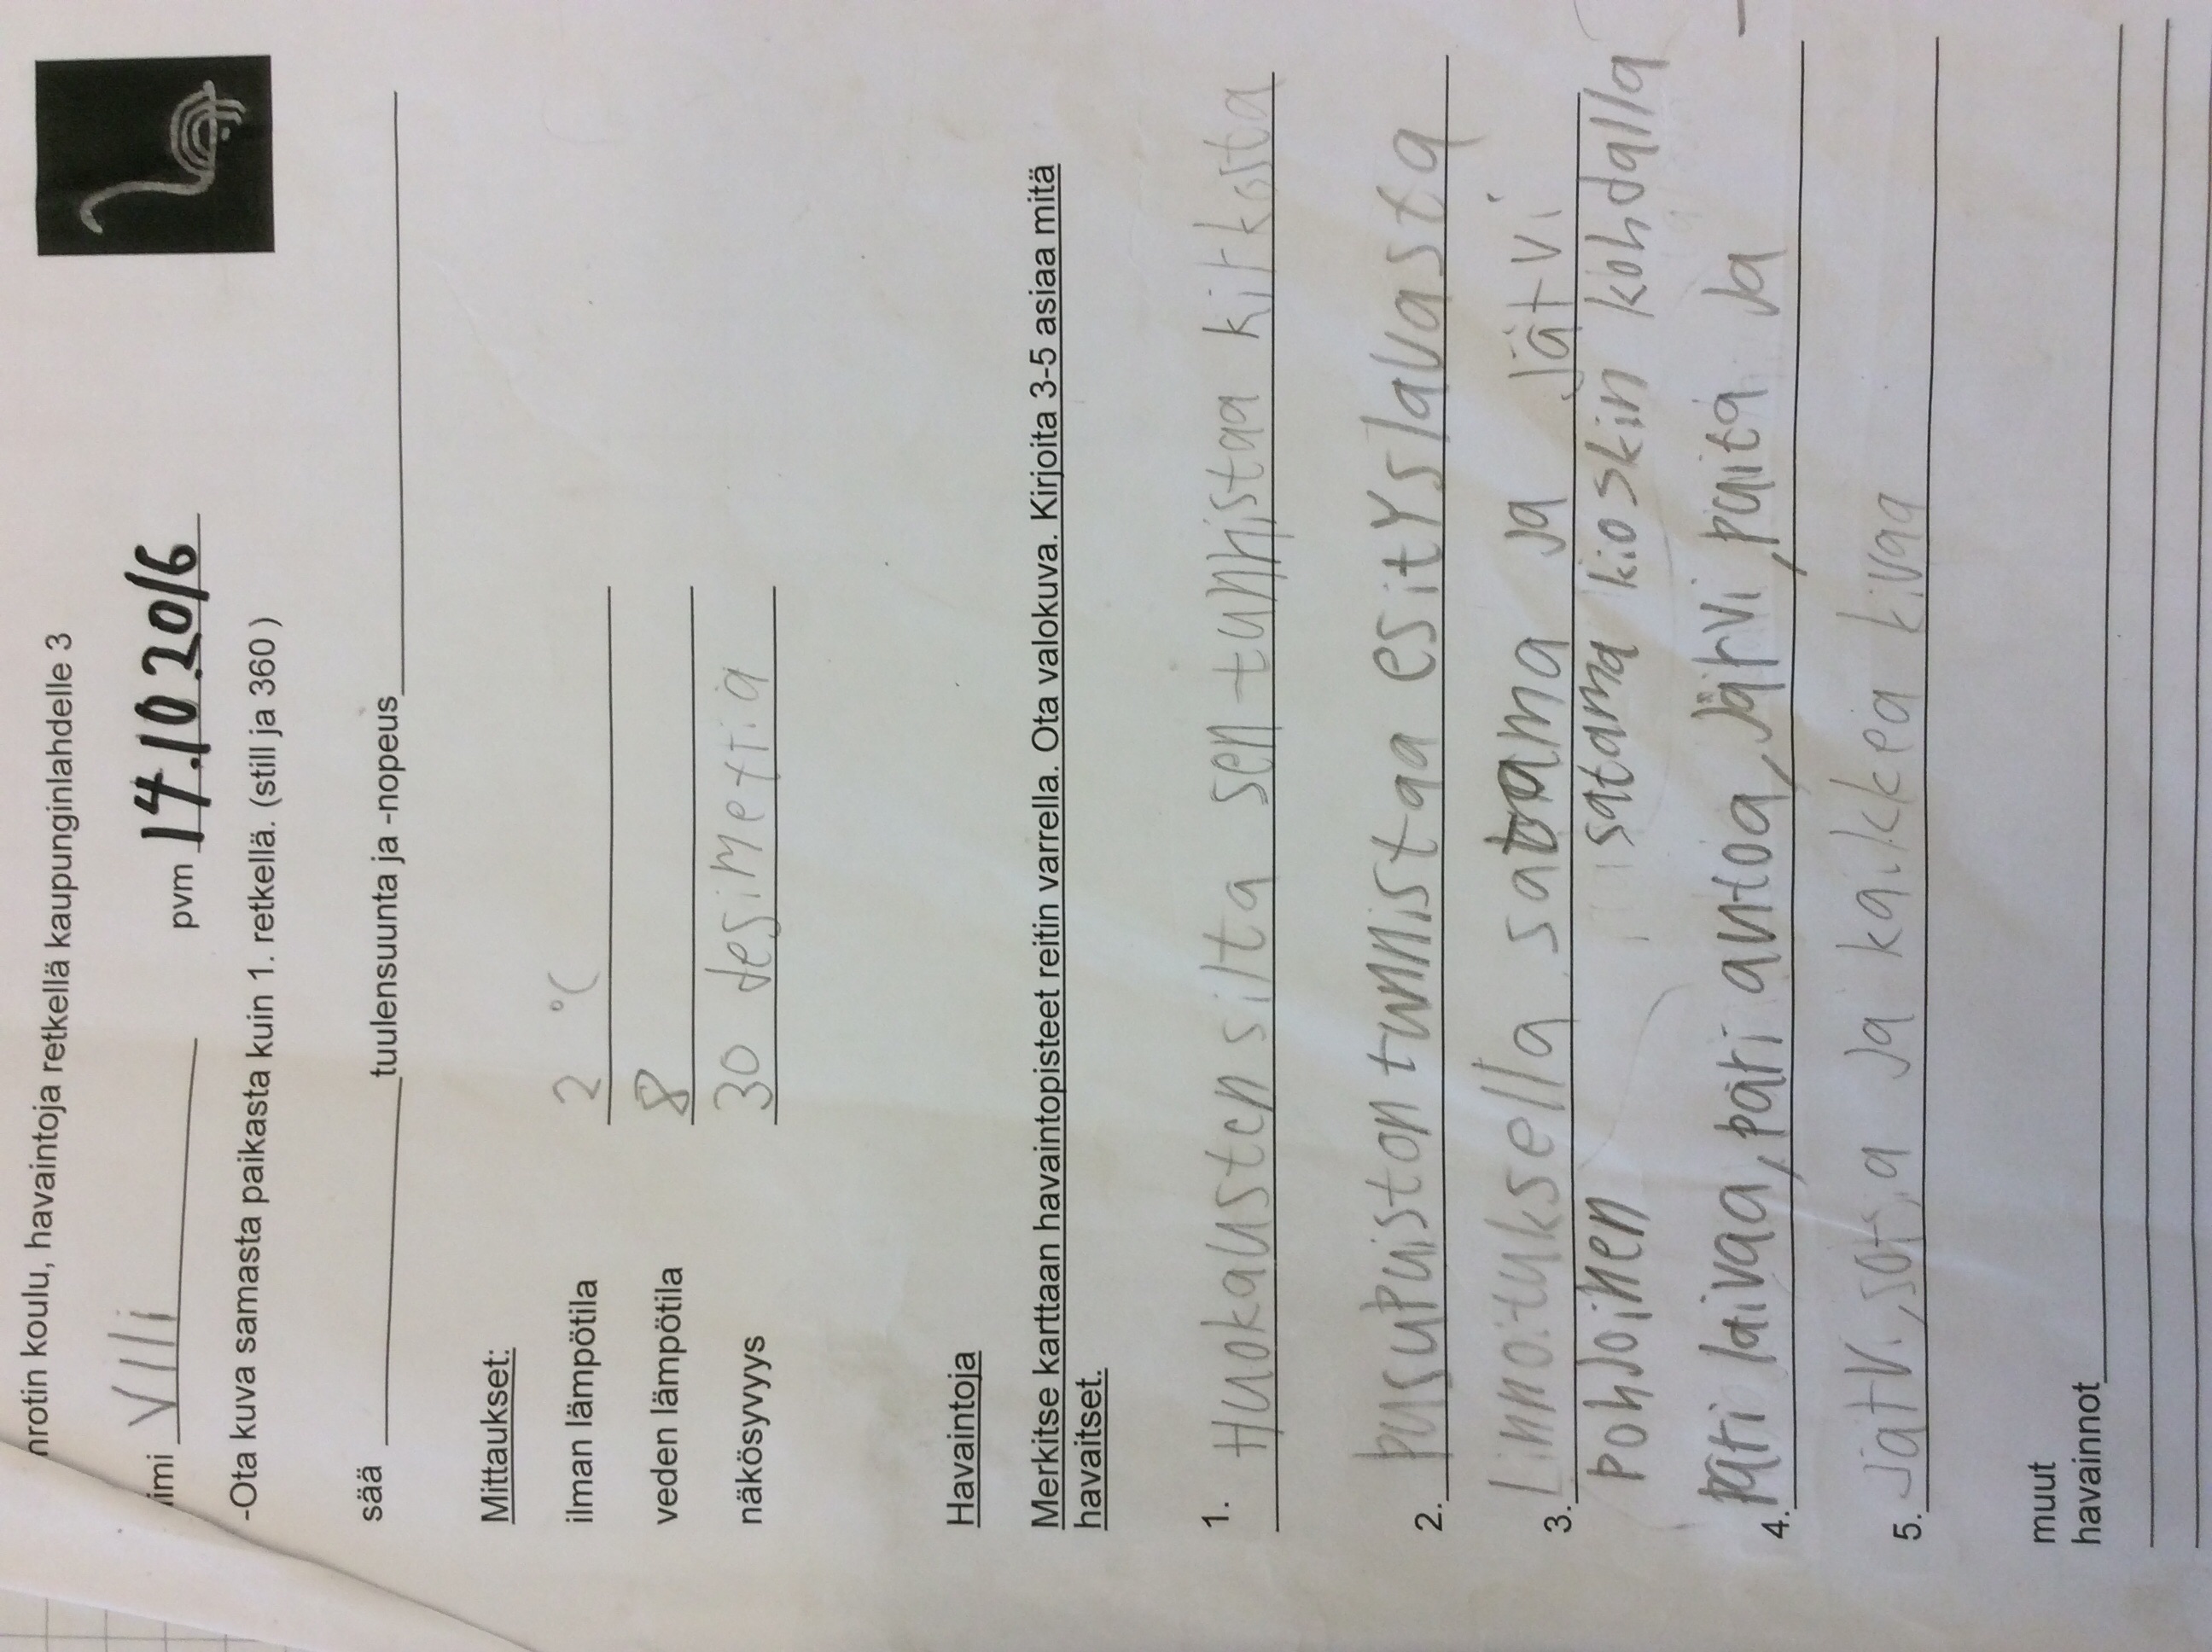 nrotin koulu, havaintoja retkellä kaupunginlahdelle 3
imi Villi pvm 14.10.2016
-Ota kuva samasta paikasta kuin 1. retkellä. (still ja 360 )
sää tuulensuunta ja -nopeus
Mittaukset:
ilman lämpötila 2 °C
veden lämpötila 8
näkösyvyys 30 desimetriä
Havaintoja
Merkitse karttaan havaintopisteet reitin varrella. Ota valokuva. Kirjoita 3-5 asiaa mitä
havaitset.
1. Huokausten silta sen tunnistaa kirkosta
2. pusupuiston tunnistaa esityslavasta
3. Linnoituksella satama ja järvi
pohjoinen satama kioskin kohdalla
4. päri laivaa, pari autoa, järvi, puita ja
5. järvi, sorsia ja kaikkea kivaa
muut
havainnot